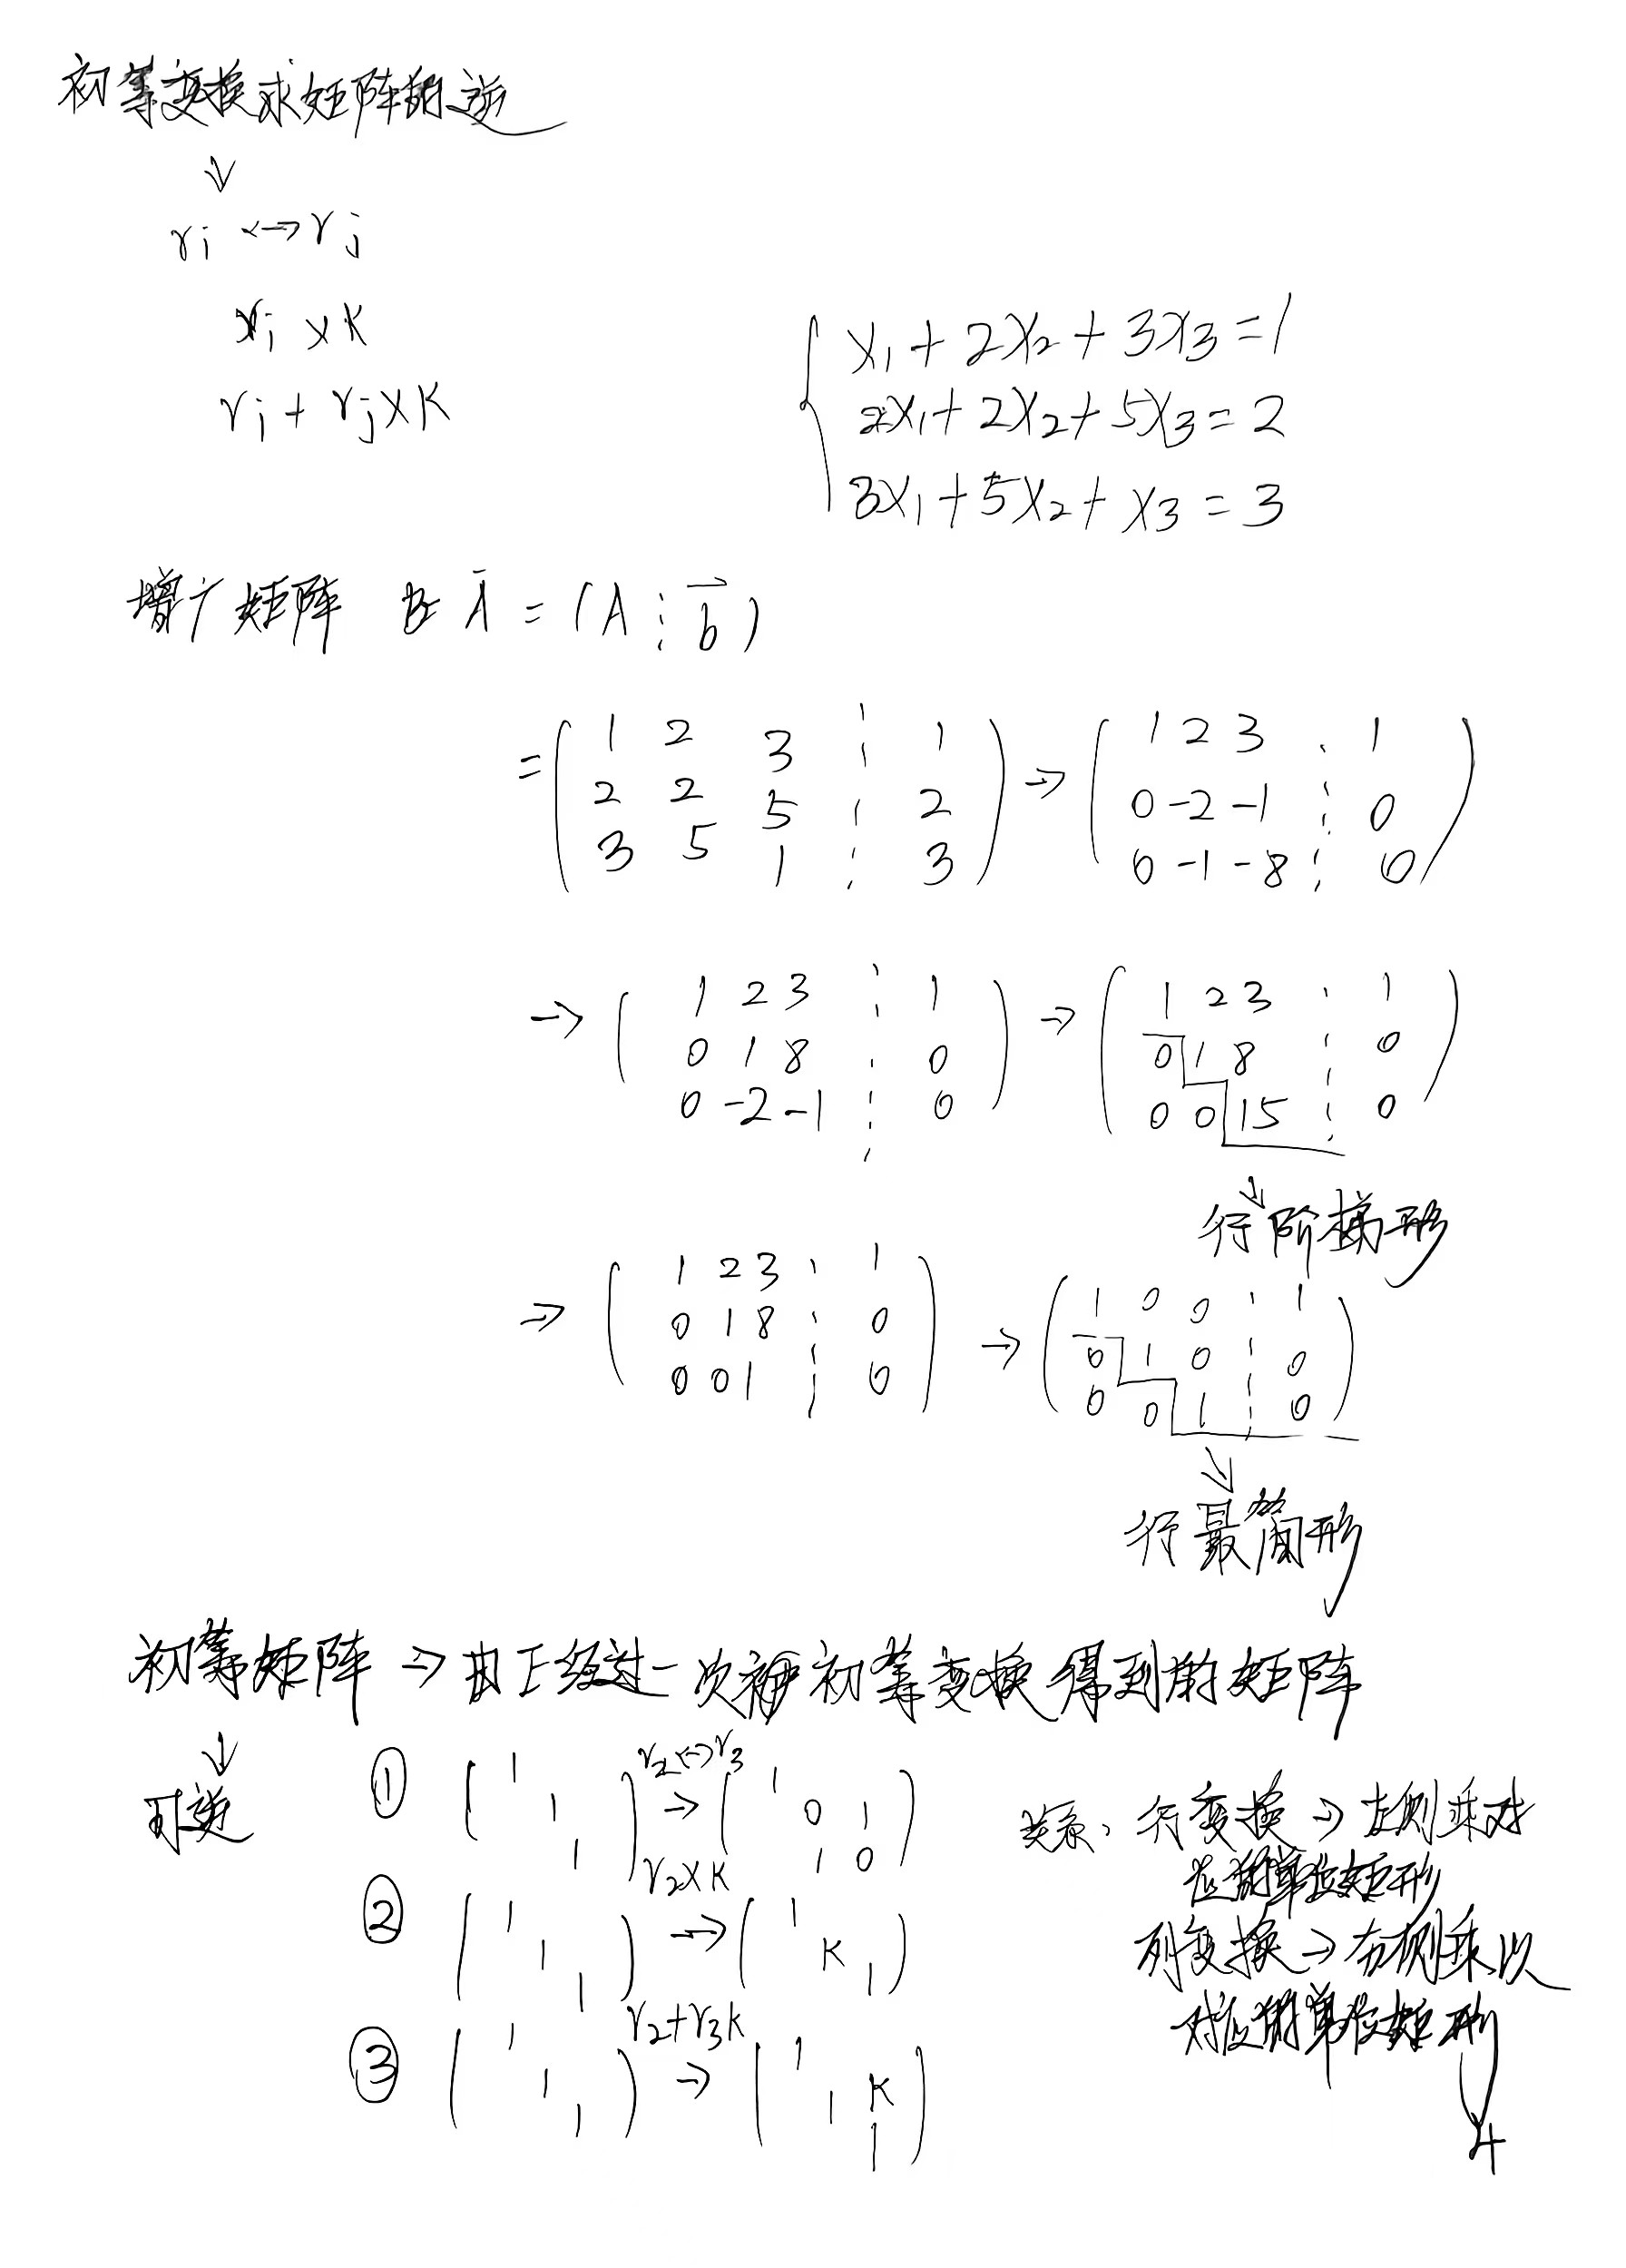 初等变换求矩阵的逆
↓
ri ↔ rj
ri × k
ri + rj × k
{ x₁ + 2x₂ + 3x₃ = 1
2x₁ + 2x₂ + 5x₃ = 2
3x₁ + 5x₂ + x₃ = 3
增广矩阵 Ā = (A ⋮ b⃗)
= ( 1 2 3 ⋮ 1 ) → ( 1 2 3 ⋮ 1 )
2 2 5 ⋮ 2 0 -2 -1 ⋮ 0
3 5 1 ⋮ 3 0 -1 -8 ⋮ 0
→ ( 1 2 3 ⋮ 1 ) → ( 1 2 3 ⋮ 1 )
0 1 8 ⋮ 0 0 1 8 ⋮ 0
0 -2 -1 ⋮ 0 0 0 15 ⋮ 0
↓
行阶梯形
→ ( 1 2 3 ⋮ 1 ) → ( 1 0 0 ⋮ 1 )
0 1 8 ⋮ 0 0 1 0 ⋮ 0
0 0 1 ⋮ 0 0 0 1 ⋮ 0
↓
行最简形
初等矩阵 → 由E经过一次初等变换得到的矩阵
↓
可逆
① ( 1 1 1 ) r₂↔r₃ → ( 1
0 1
1 0 )
② ( 1 1 1 ) r₂×k → ( 1 k 1 )
③ ( 1 1 1 ) r₂+r₃k → ( 1
1 k
1 )
关系: 行变换 → 左侧乘对
应的单位矩形
列变换 → 右侧乘以
对应的单位矩形
4